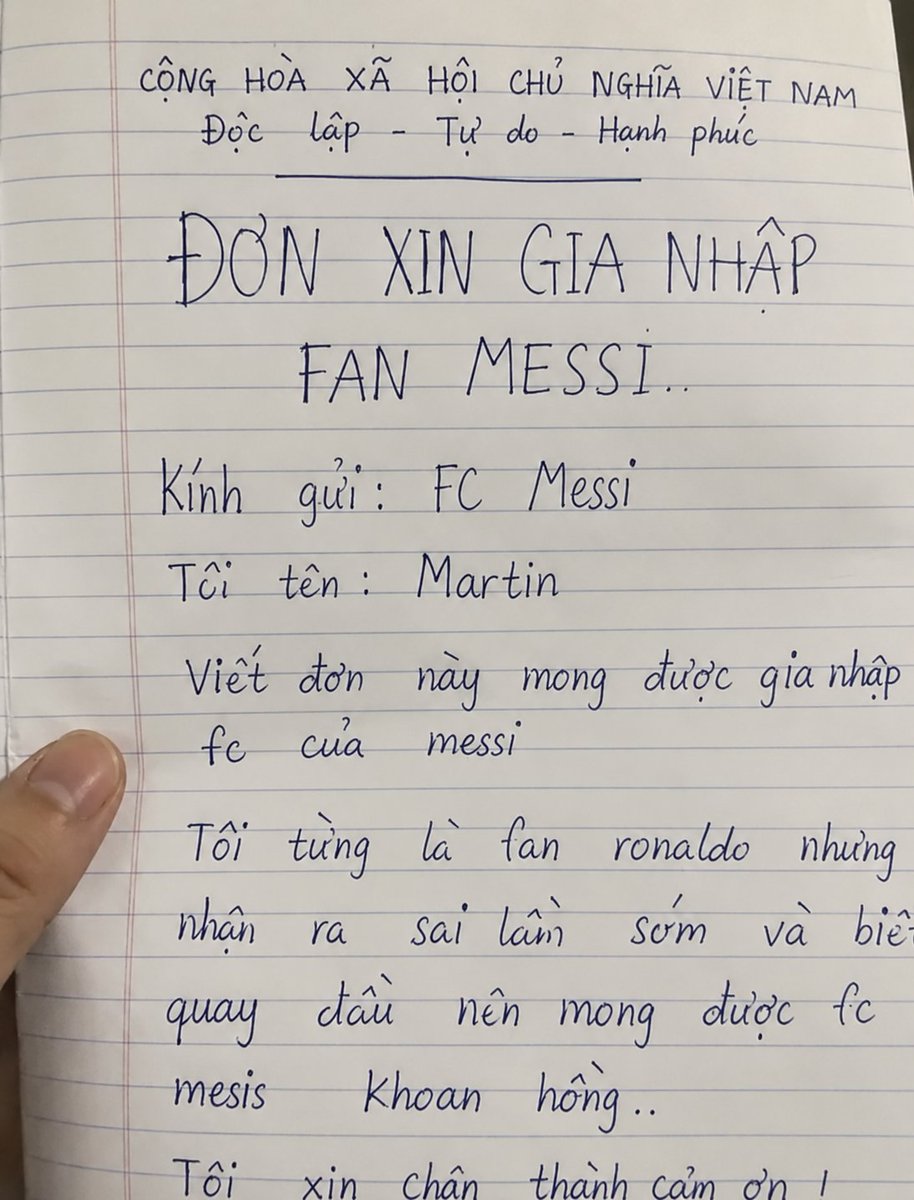 CỘNG HÒA XÃ HỘI CHỦ NGHĨA VIỆT NAM
Độc lập - Tự do - Hạnh phúc
ĐƠN XIN GIA NHẬP
FAN MESSI..
Kính gửi: FC Messi
Tôi tên: Martin
Viết đơn này mong được gia nhập
fc của messi
Tôi từng là fan ronaldo nhưng
nhận ra sai lầm sớm và biết
quay đầu nên mong được fc
mesis khoan hồng..
Tôi xin chân thành cảm ơn !